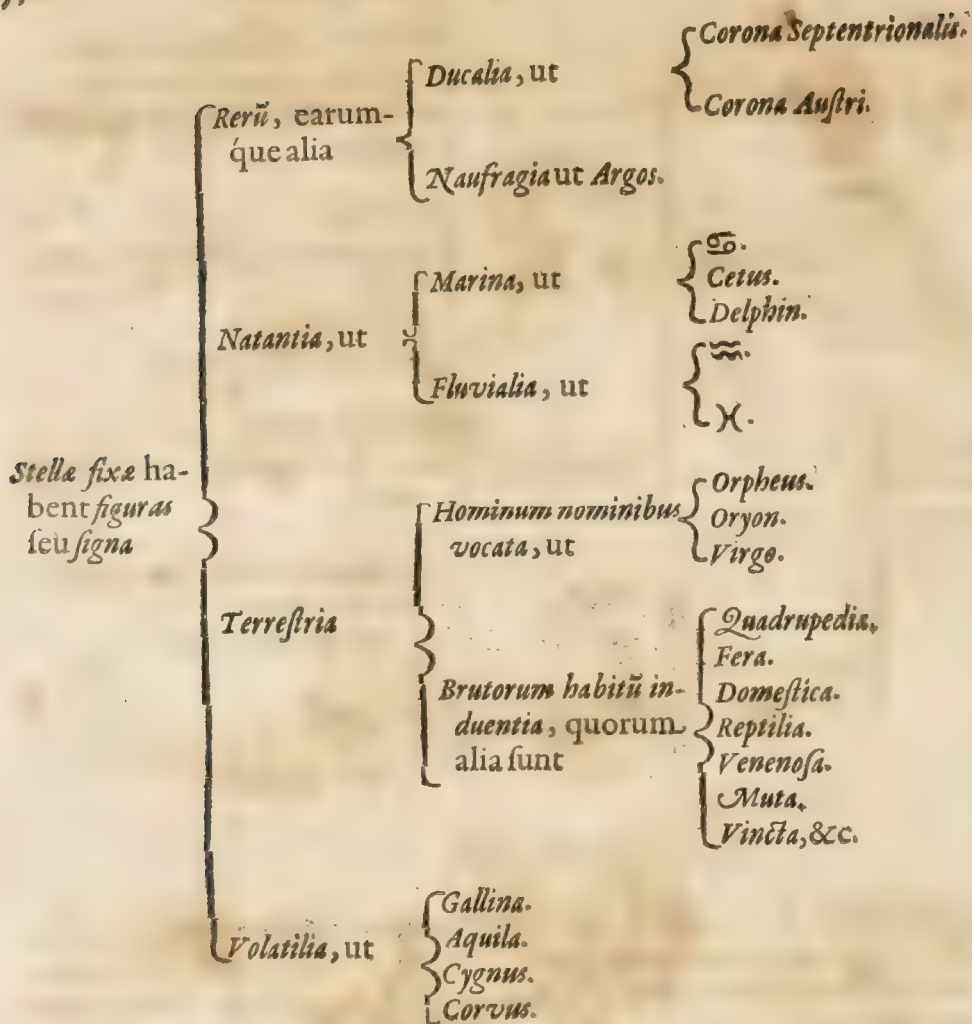 Stellæ fixæ ha-
bent figuras
ſeu ſigna
Rerũ, earum-
q́ue alia
Ducalia, ut
Corona Septentrionalis.
Corona Auſtri.
Naufragia ut Argos.
Natantia, ut
Marina, ut
♋.
Cetus.
Delphin.
Fluvialia, ut
♒.
♓.
Terreſtria
Hominum nominibus
vocata, ut
Orpheus.
Oryon.
Virgo.
Brutorum habitũ in-
duentia, quorum
alia ſunt
Quadrupedia.
Fera.
Domeſtica.
Reptilia.
Venenoſa.
Muta.
Vincta, &c.
Volatilia, ut
Gallina.
Aquila.
Cygnus.
Corvus.